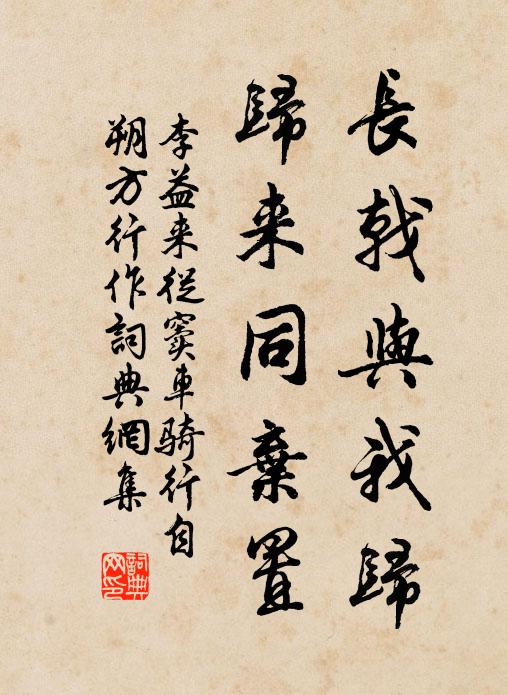 長戟與我歸
歸来同棄置
李益来從竇車騎行自
朔方行作詞典網集
詞典
网印